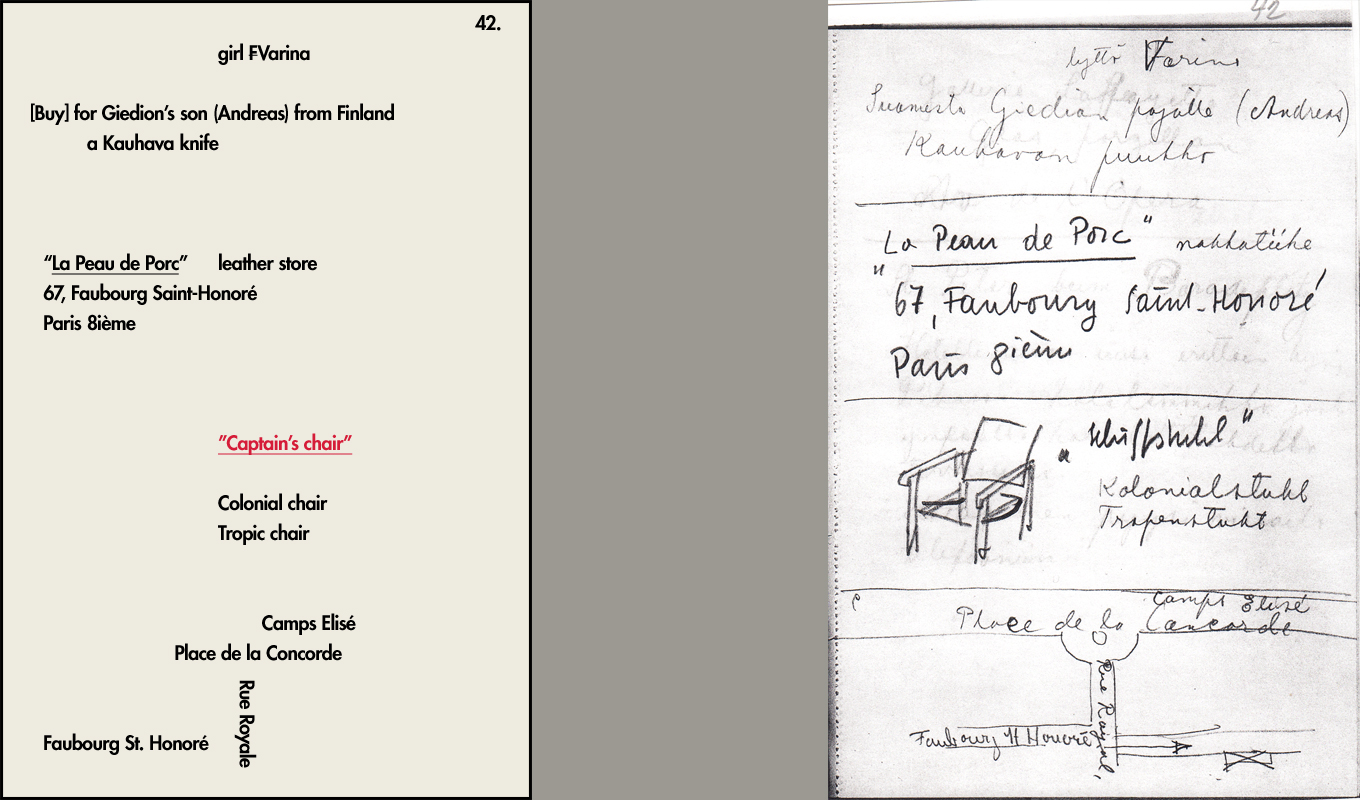 42.
girl FVarina
[Buy] for Giedion's son (Andreas) from Finland
a Kauhava knife
"La Peau de Porc" leather store
67, Faubourg Saint-Honoré
Paris 8ième
"Captain's chair"
Colonial chair
Tropic chair
Camps Elisé
Place de la Concorde
Rue Royale
Faubourg St. Honoré
42
tyttö Varina
Suomesta Giedion pojalle (Andreas)
Kauhavan puukko
"La Peau de Porc" nahkatiike
67, Faubourg Saint-Honoré
Paris 8ième
"Schiffstuhl"
Kolonialstuhl
Tropenstuhl
Camps Elisé
Place de la Concorde
Rue Royal,
Faubourg St Honoré